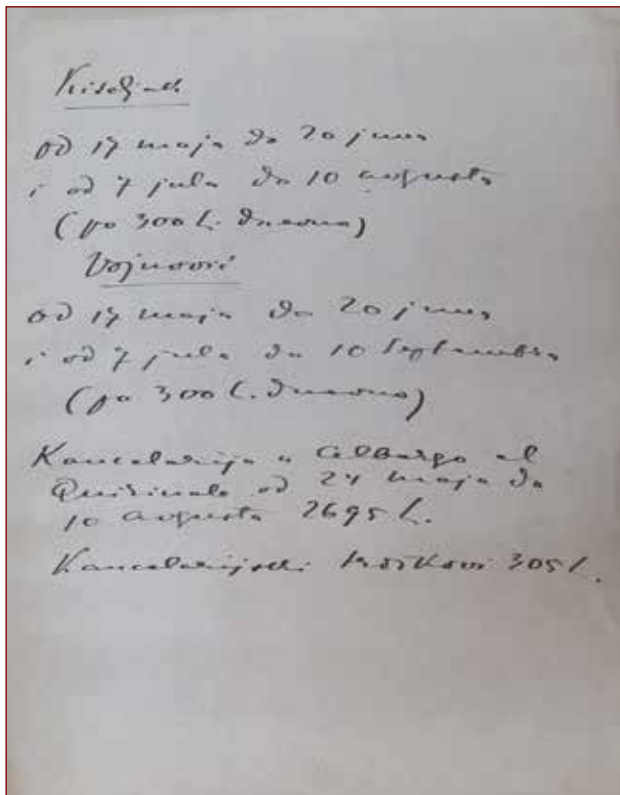 Kiseljak
od 17 maja do 20 juna
i od 7 jula do 10 avgusta
(po 300 L. dnevno)
Vojnović
od 17 maja do 20 juna
i od 7 jula do 10 Septembra
(po 300 L. dnevno)
Kancelarija u Albergo al
Quirinale od 24 maja do
10 avgusta 2695 L.
Kancelarijski troškovi 305 L.